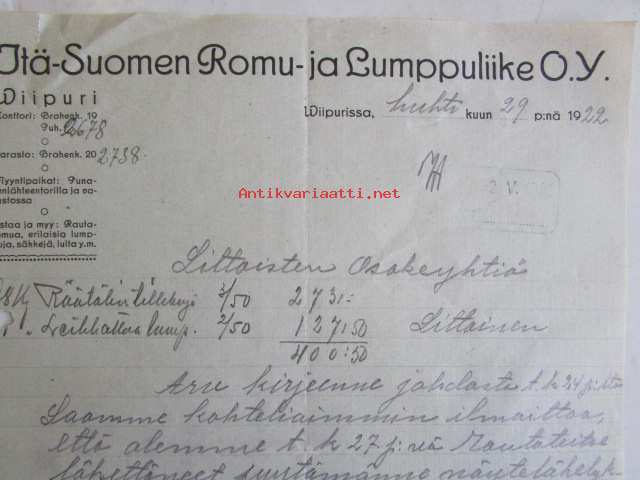 Itä-Suomen Romu- ja Lumppuliike O.Y.
Wiipuri
Konttori: Brahenk. 19
Puh. 2678
arasto: Brahenk. 20 2738.
Myyntipaikat: Puna-
enlähteentorilla ja sa-
tastossa
Ostaa ja myy: Rauta-
omua, erilaisia lump-
uja, säkkejä, luita y.m.
Wiipurissa, huhti kuun 29 p:nä 1922
Antikvariaatti.net
2. V.
Littoisten Osakeyhtiö
Littoinen
Räätälin 3/50 273:-
lump. 2/50 127:50
400:50
Arv. kirjeenne johdosta t.k. 24 p:ltä
Saamme kohteliaimmin ilmoittaa,
että olemme t.k. 27 p:nä Rautateitse
lähettäneet